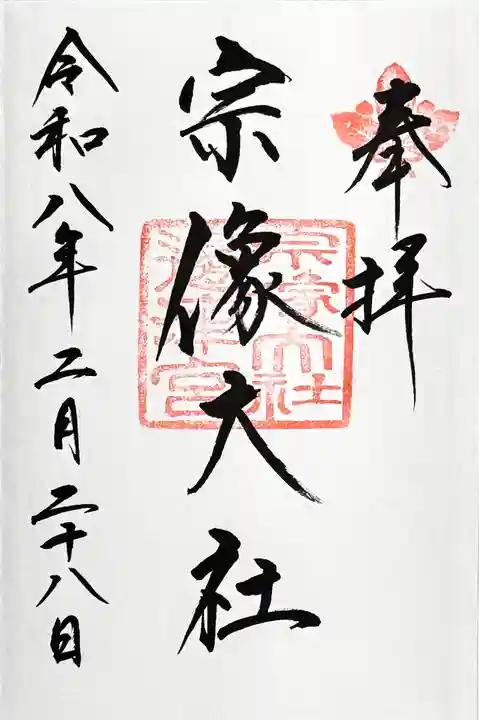 奉拝
宗像大社
宗像大社
邊津宮
令和八年二月二十八日